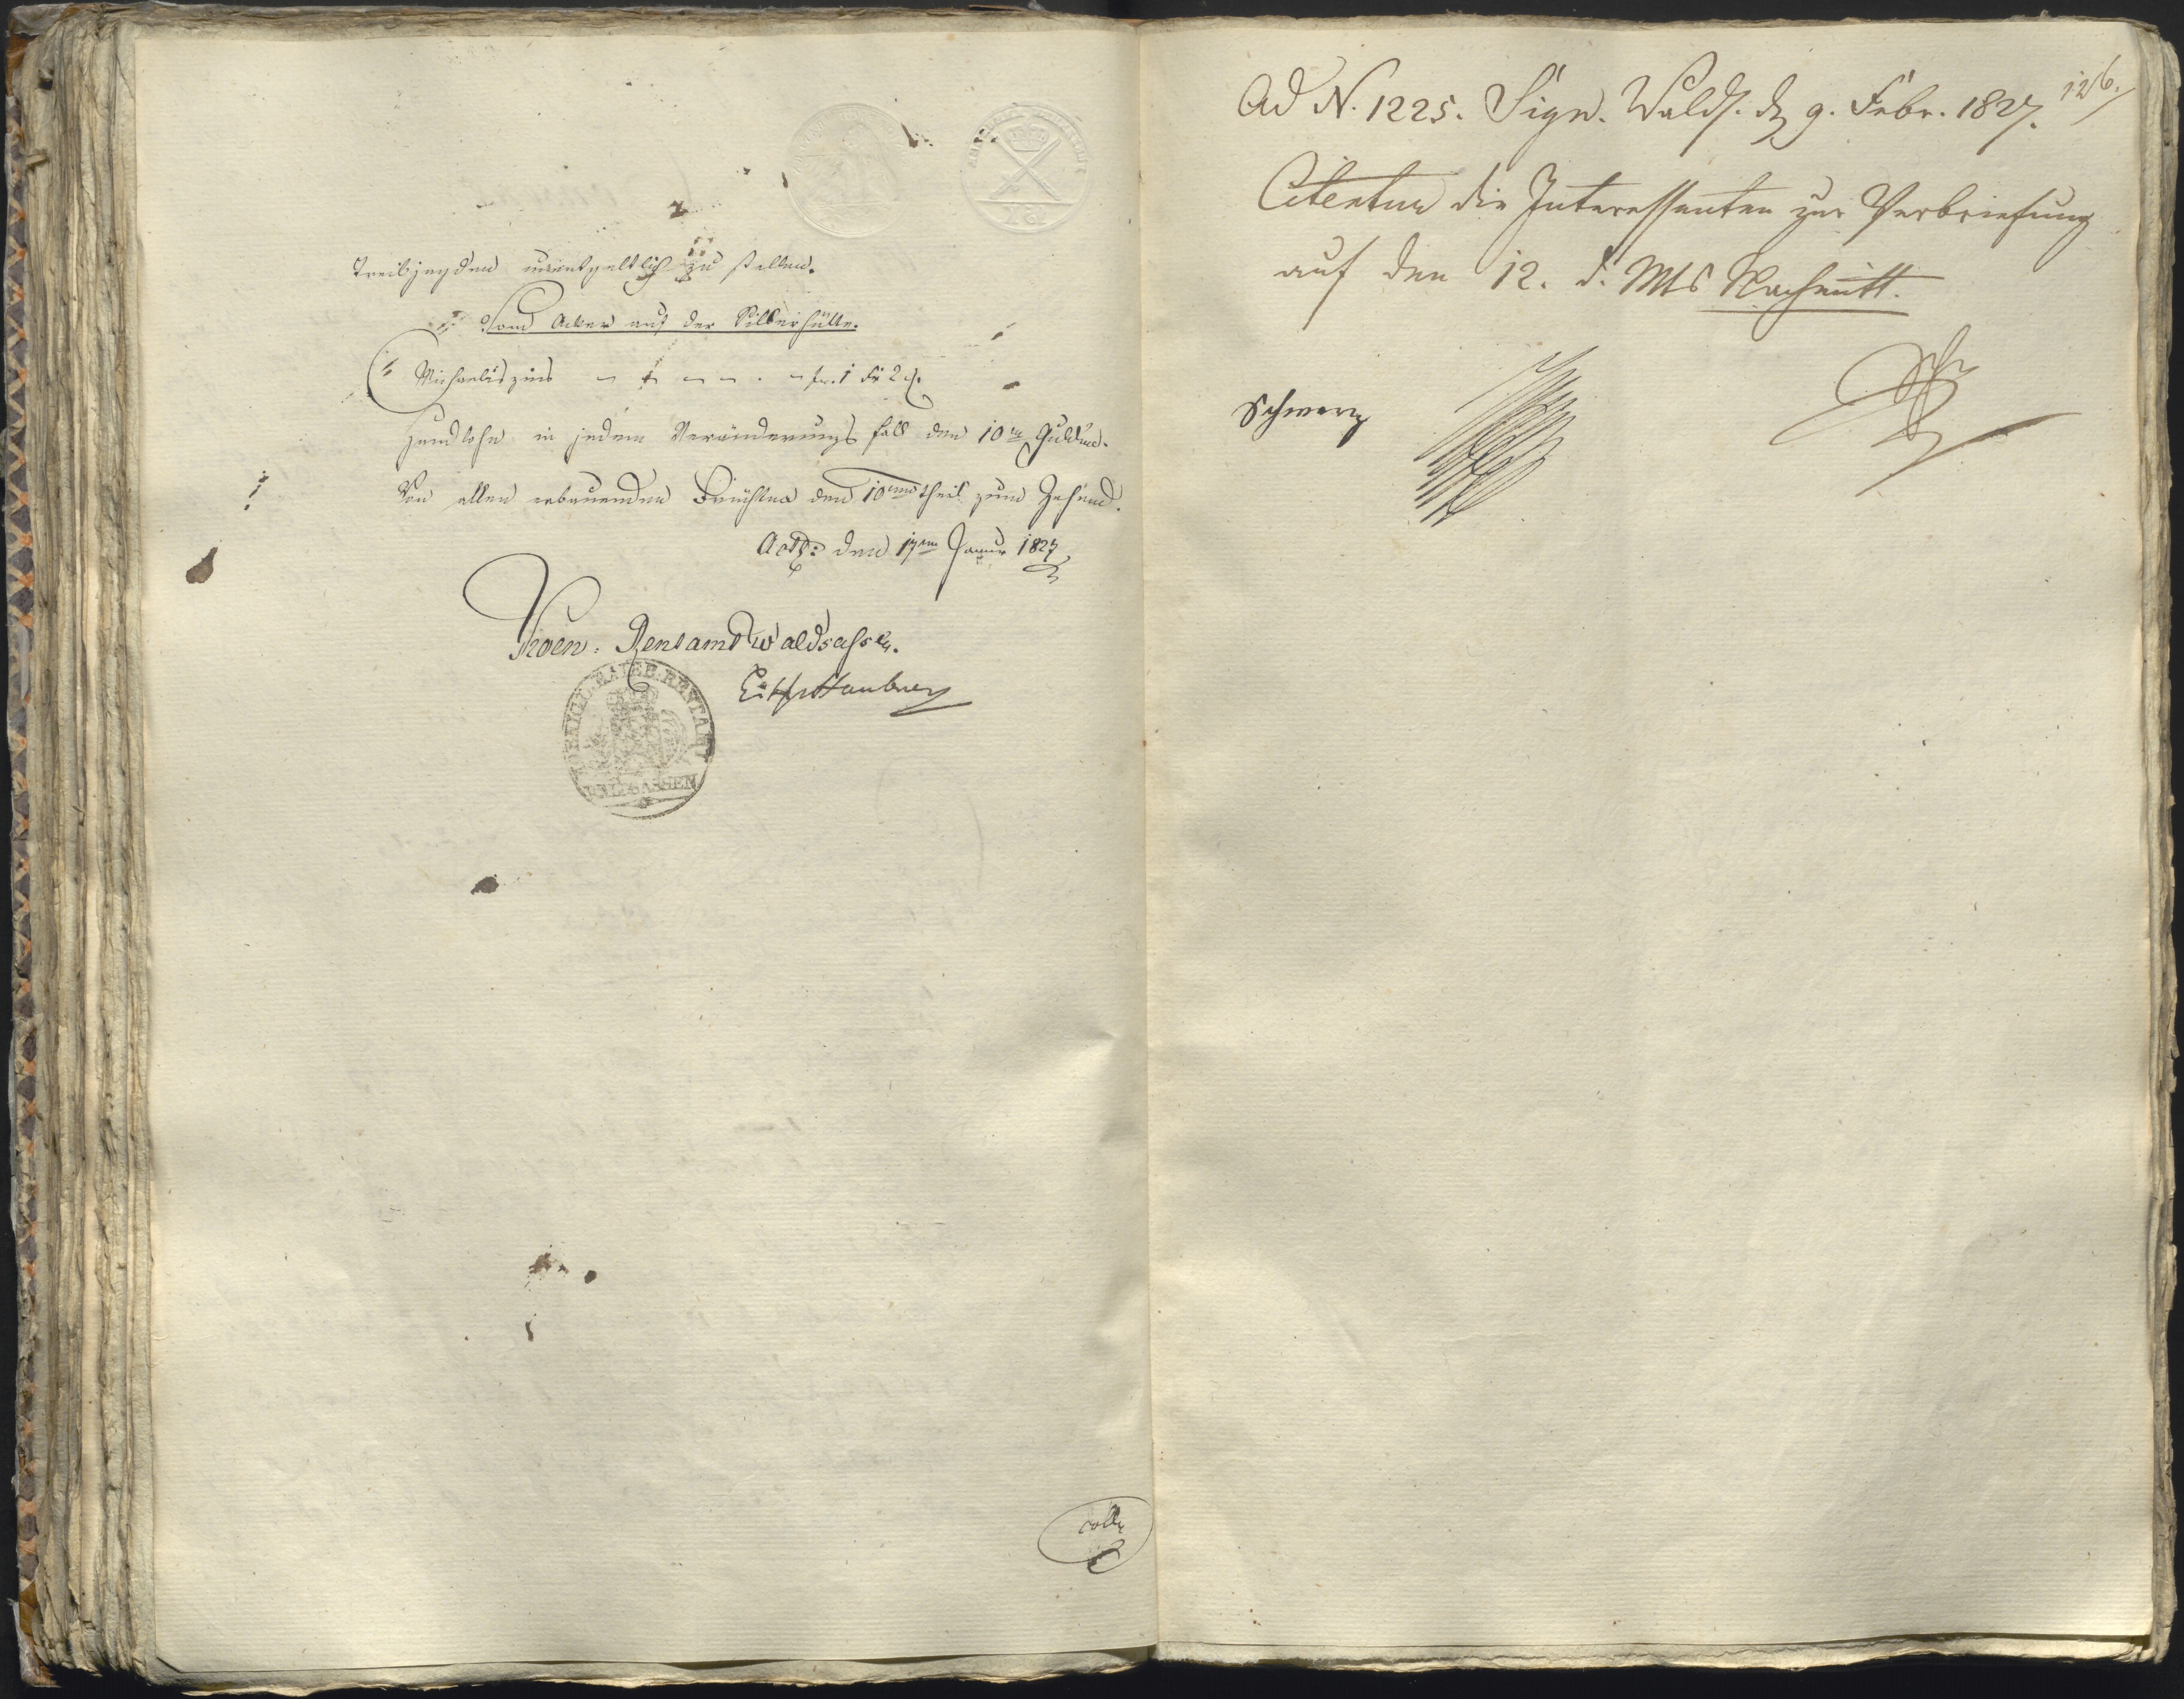 Treibjagden unentgeltlich zu stellen.
Vom Acker auf der Silberhütte.
Michaelis zins
Handlohn in jedem Veränderungs fall den 10ten Gulden.
Von allen erbauenden Früchten den 10ten theil zum Zehend.
Act: den 17ten Januar 1827
Koen. Rentamt Waldsassen.
KOENIGL. BAIER. RENTAMT
WALDSASSEN
coll
126.
Ad N. 1225. Sign. Walds. d. 9. Febr. 1827.
Citentur die Interessenten zur Verbriefung
auf den 12. d. Mts Nachmitt.
Schwarz